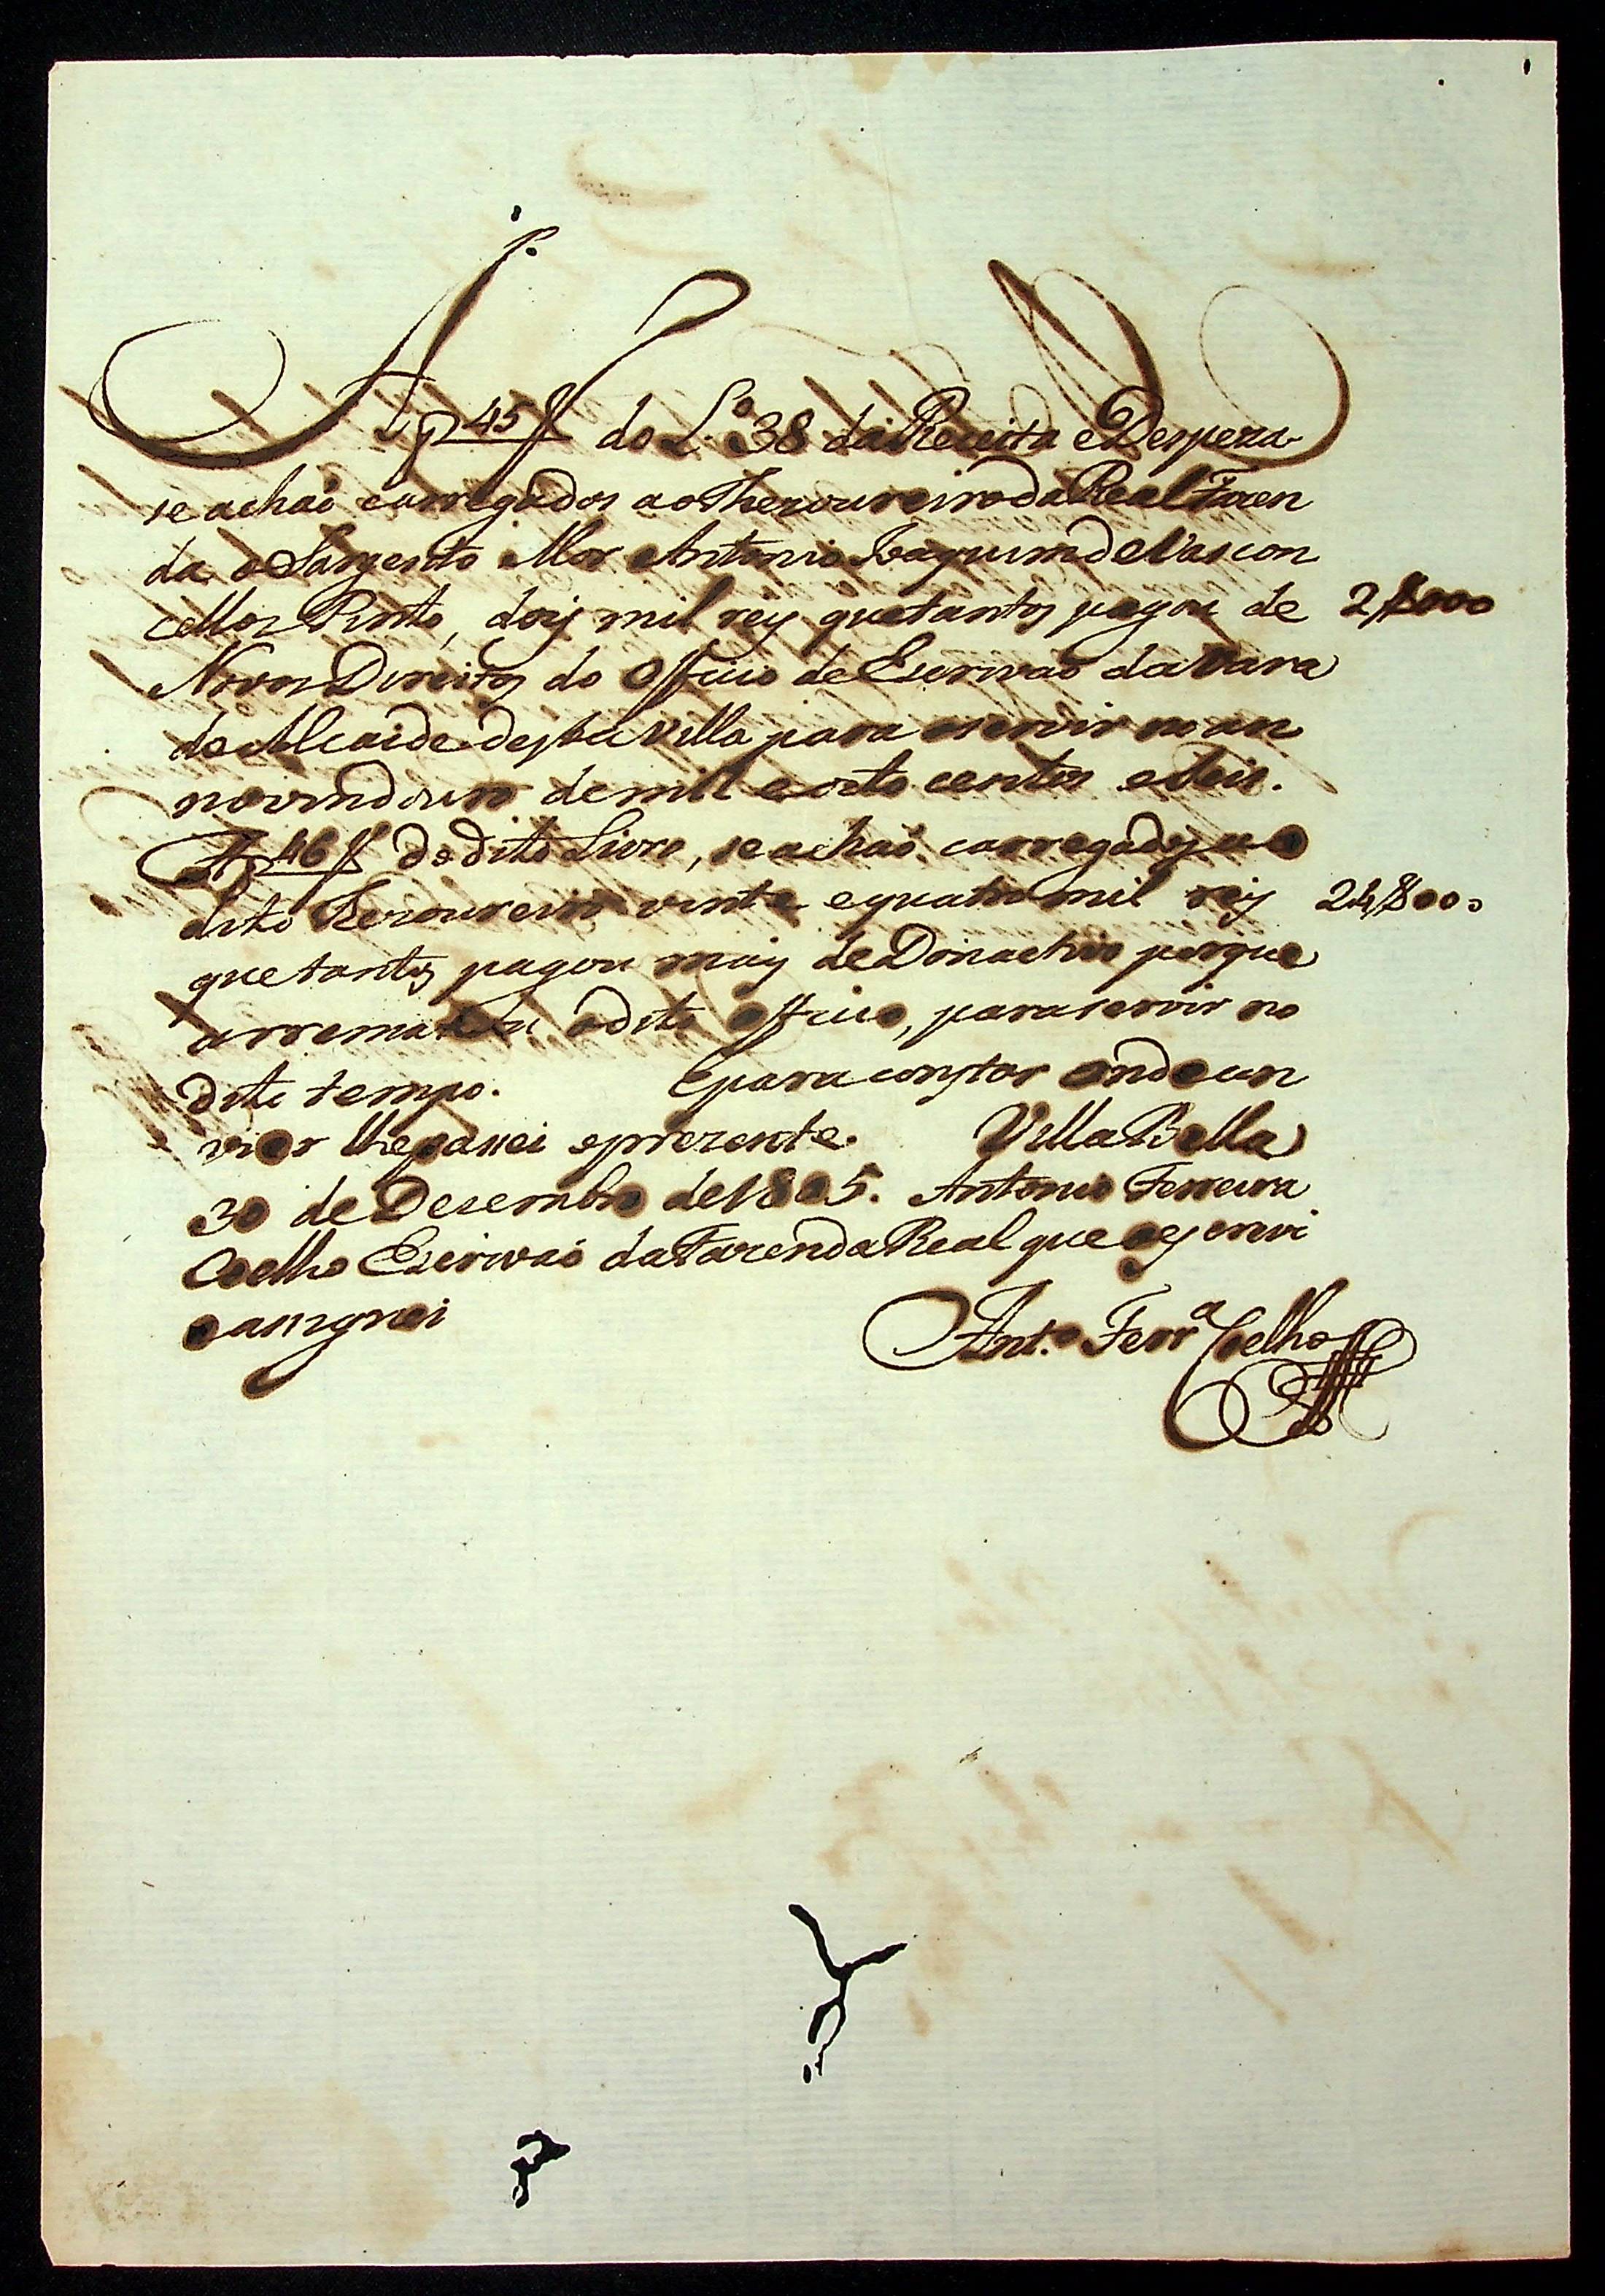 A f 45 f do L.º 38 da Receita e Despeza
se achaõ carregados ao Thezoureiro da Real Fazen
da o Sargento Mor Antonio Joaquim de Vascon
cellos Pinto, doiz mil reiz que tantos pagou de 2$000
Novos Direitos do Officio de Escrivaõ da Vara
de Alcaide desta Villa para o servir no an
no vindouro de mil e oito centos e seis.
A f 46 f do dito Livro, se achaõ carregados ao
dito Thezoureiro vinte e quatro mil reis 24$000
que tantos pagou mais de Donativo porque
arrematou o dito Officio, para servir no
dito tempo. E para constar onde con
vier lhe passei o prezente. Villa Bella
30 de Desembro de 1805. Antonio Ferreira
Coelho Escrivaõ da Fazenda Real que o escrevi
e assignei
Ant.º Ferr.ª Coelho